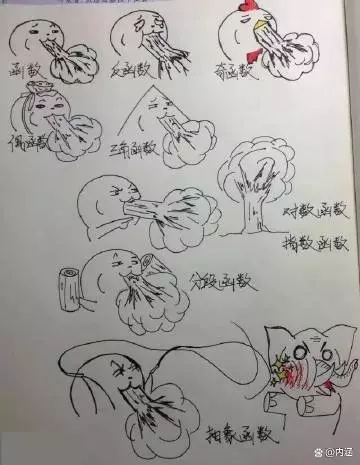 函数
反函数
奇函数
偶函数
三角函数
对数函数
指数函数
分段函数
抽象函数
@内涵